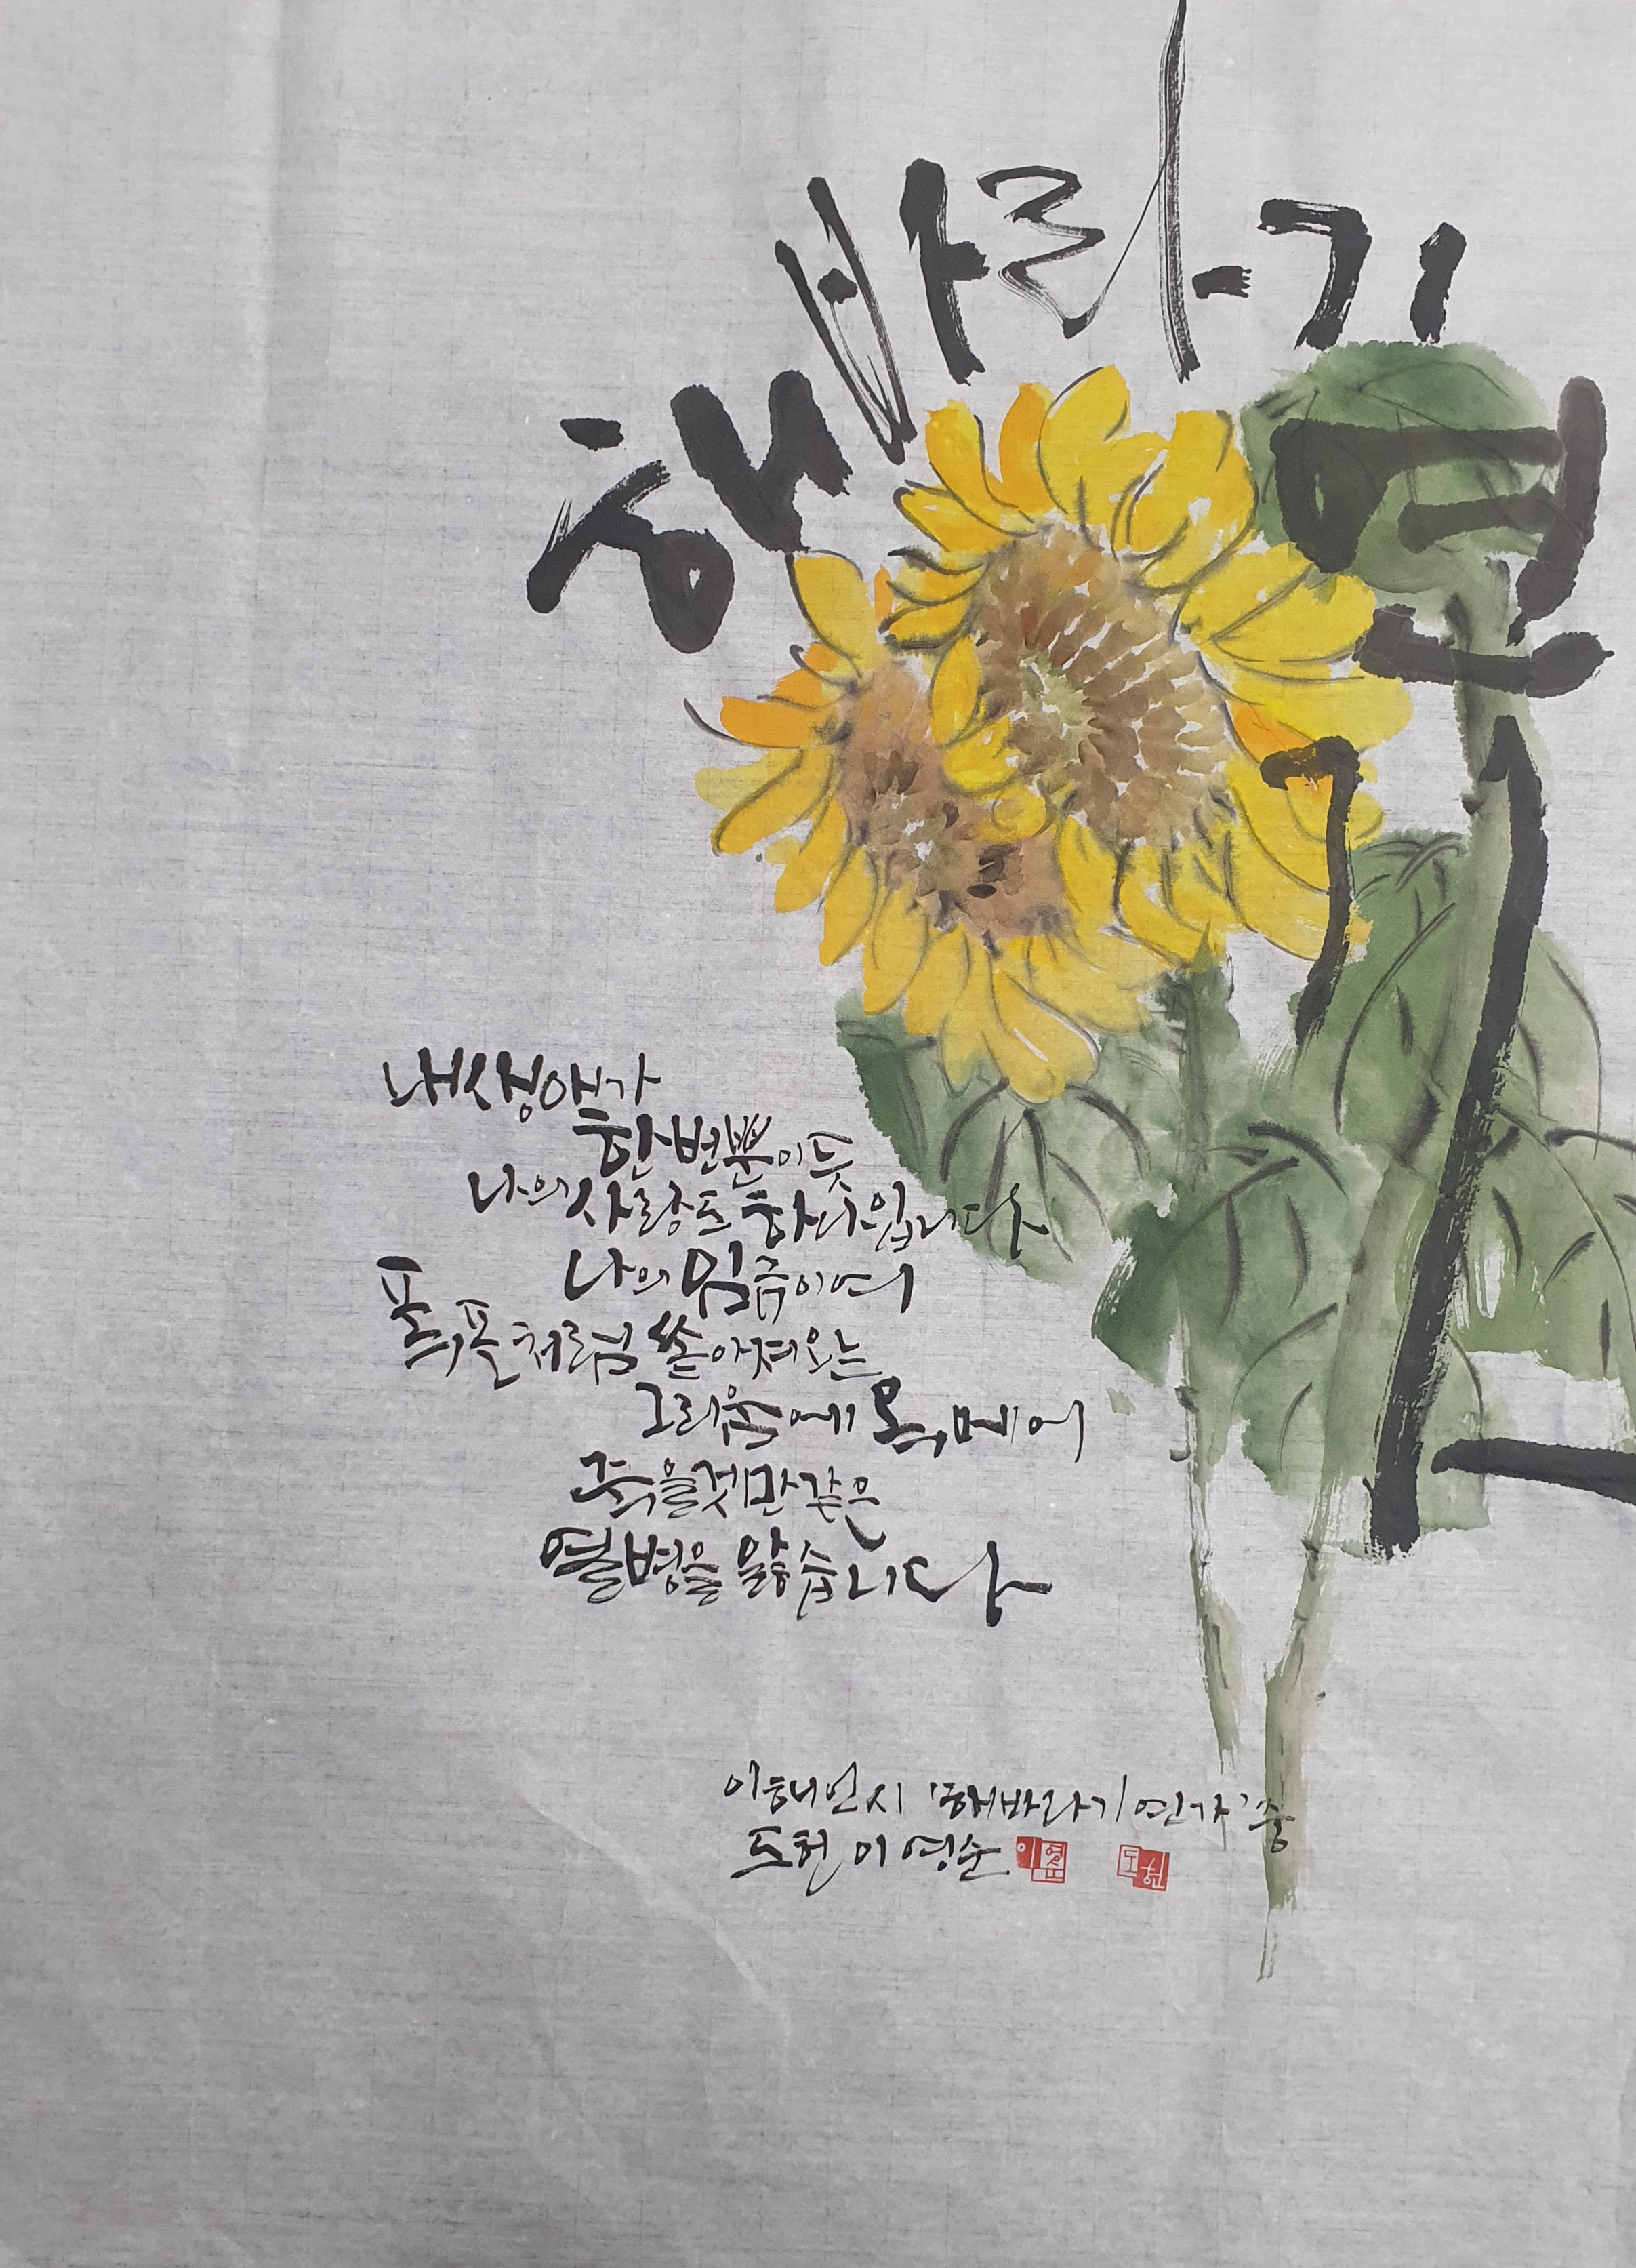 해바라기
연
가
내 생애가
한 번뿐이듯
나의 사랑도 하나입니다
나의 임금이여
폭포처럼 쏟아져오는
그리움에 목메어
죽을 것만 같은
열병을 앓습니다
이해인 시 '해바라기 연가' 중
도헌 이영순
이영순
도헌